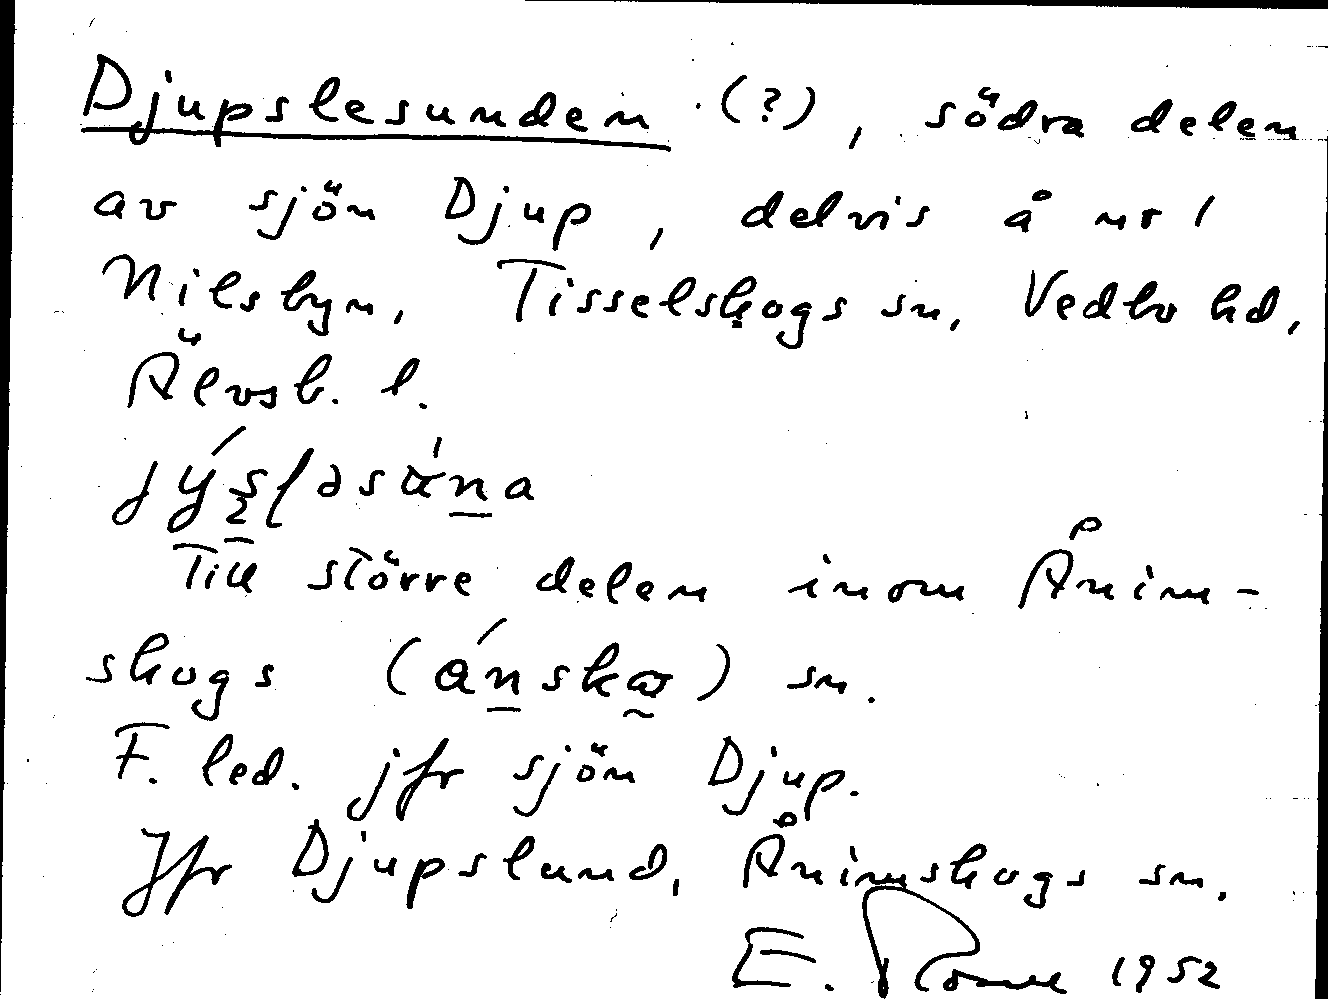 Djupslesunden (?), södra delen
av sjön Djup, delvis å nr 1
Nilsbyn, Tisselskogs sn, Vedbo hd,
Älvsb. l.
Till större delen inom Ånim-
skogs sn.
F. led. jfr sjön Djup.
Jfr Djupslund, Ånimskogs sn.
E. 1952